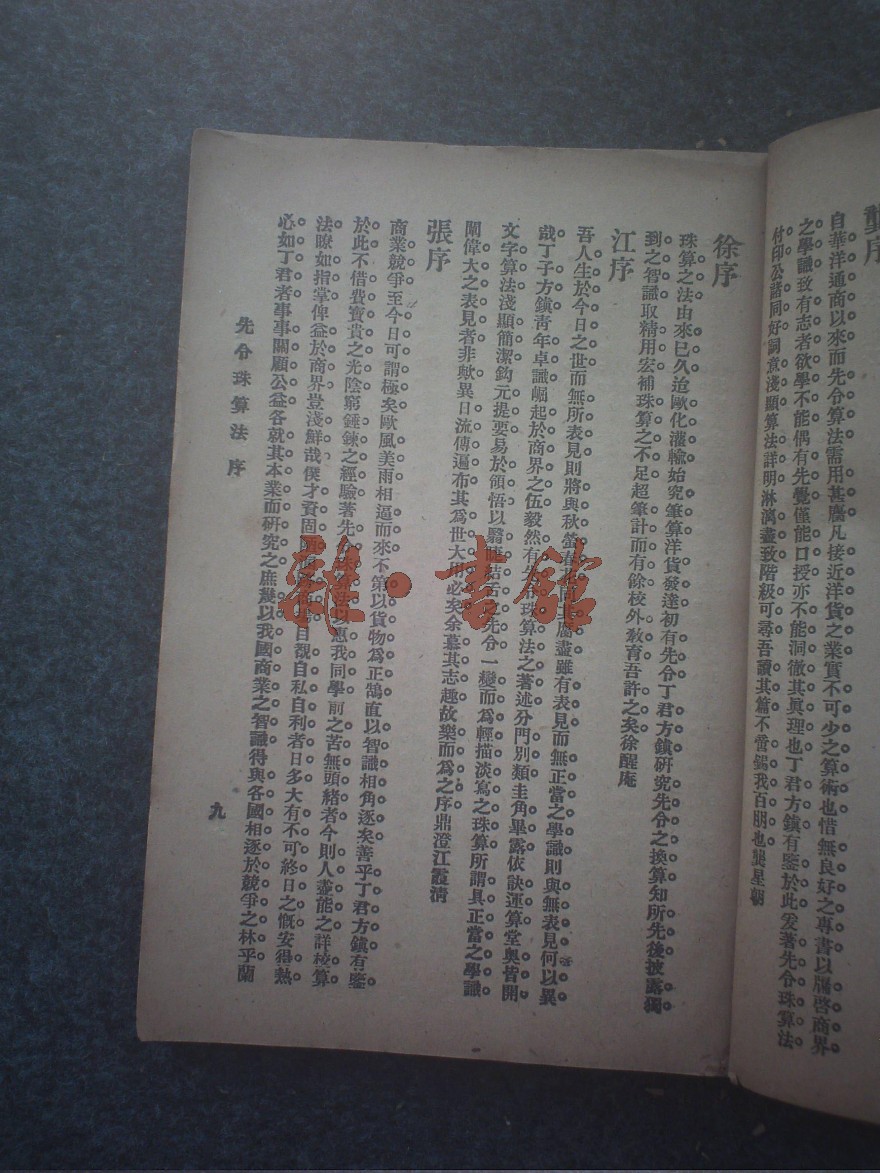 龔序
自華洋通商以來而先令算法需用甚廣凡接近洋貨之業實不可少之算術也惜無良好之專書以牖啓商界
之學識致有志者欲學不能偶有先覺僅能口授亦不能洞徹其眞理也丁君方鎮有鑒於此爰著先令珠算法
付印公諸同好詞意淺顯算法詳明淋漓盡致階級可尋吾讀其篇不啻錫我百朋也龔星朝
徐序
珠算之法由來已久迨歐化灌輸始究筆算洋貨發達初有先令丁君方鎮研究先令之換算知所先後披露獨
到之智識取精用宏補珠算之不足超筆計而有餘校外教育吾許之矣徐醒庵
江序
吾人生於今日之世而無所表見則將與秋螢春花同其腐盡雖有表見而無正當之學識則與無表見何以異
哉丁子方鎮靑年卓識崛起於商界之伍毅然有先令珠算法之著述分門別類圭角畢露依訣運算堂奧皆開
文字算法淺顯簡潔鈎元提要易於領悟以翳睫結舌之先令一變而爲輕描淡寫之珠算所謂具正當之學識
闡偉大之表見者非歟異日流傳遍布其爲世大用必矣余慕其志趣故樂而爲之序鼎澄江霞清
張序
商業競爭至今日可謂極矣歐風美雨相逼而來不第以貨物爲正鵠直以智識相角逐矣善乎丁君方鎮有鑒
於此不惜費寶貴之光陰窮錘鍊之經驗著先令珠算法以惠我同學前之苦無頭緒者今則人盡能之詳稜算
法瞭如指掌俾益於商界豈淺鮮哉僕才資固 目覩自私自利者日多大有不可終日之慨安得熱
必如丁君者事事關顧公益各就其本業而研究之庶幾以我國商業之智識得與各國相逐於競爭之林乎蘭
先令珠算法 序
九
雜·書館